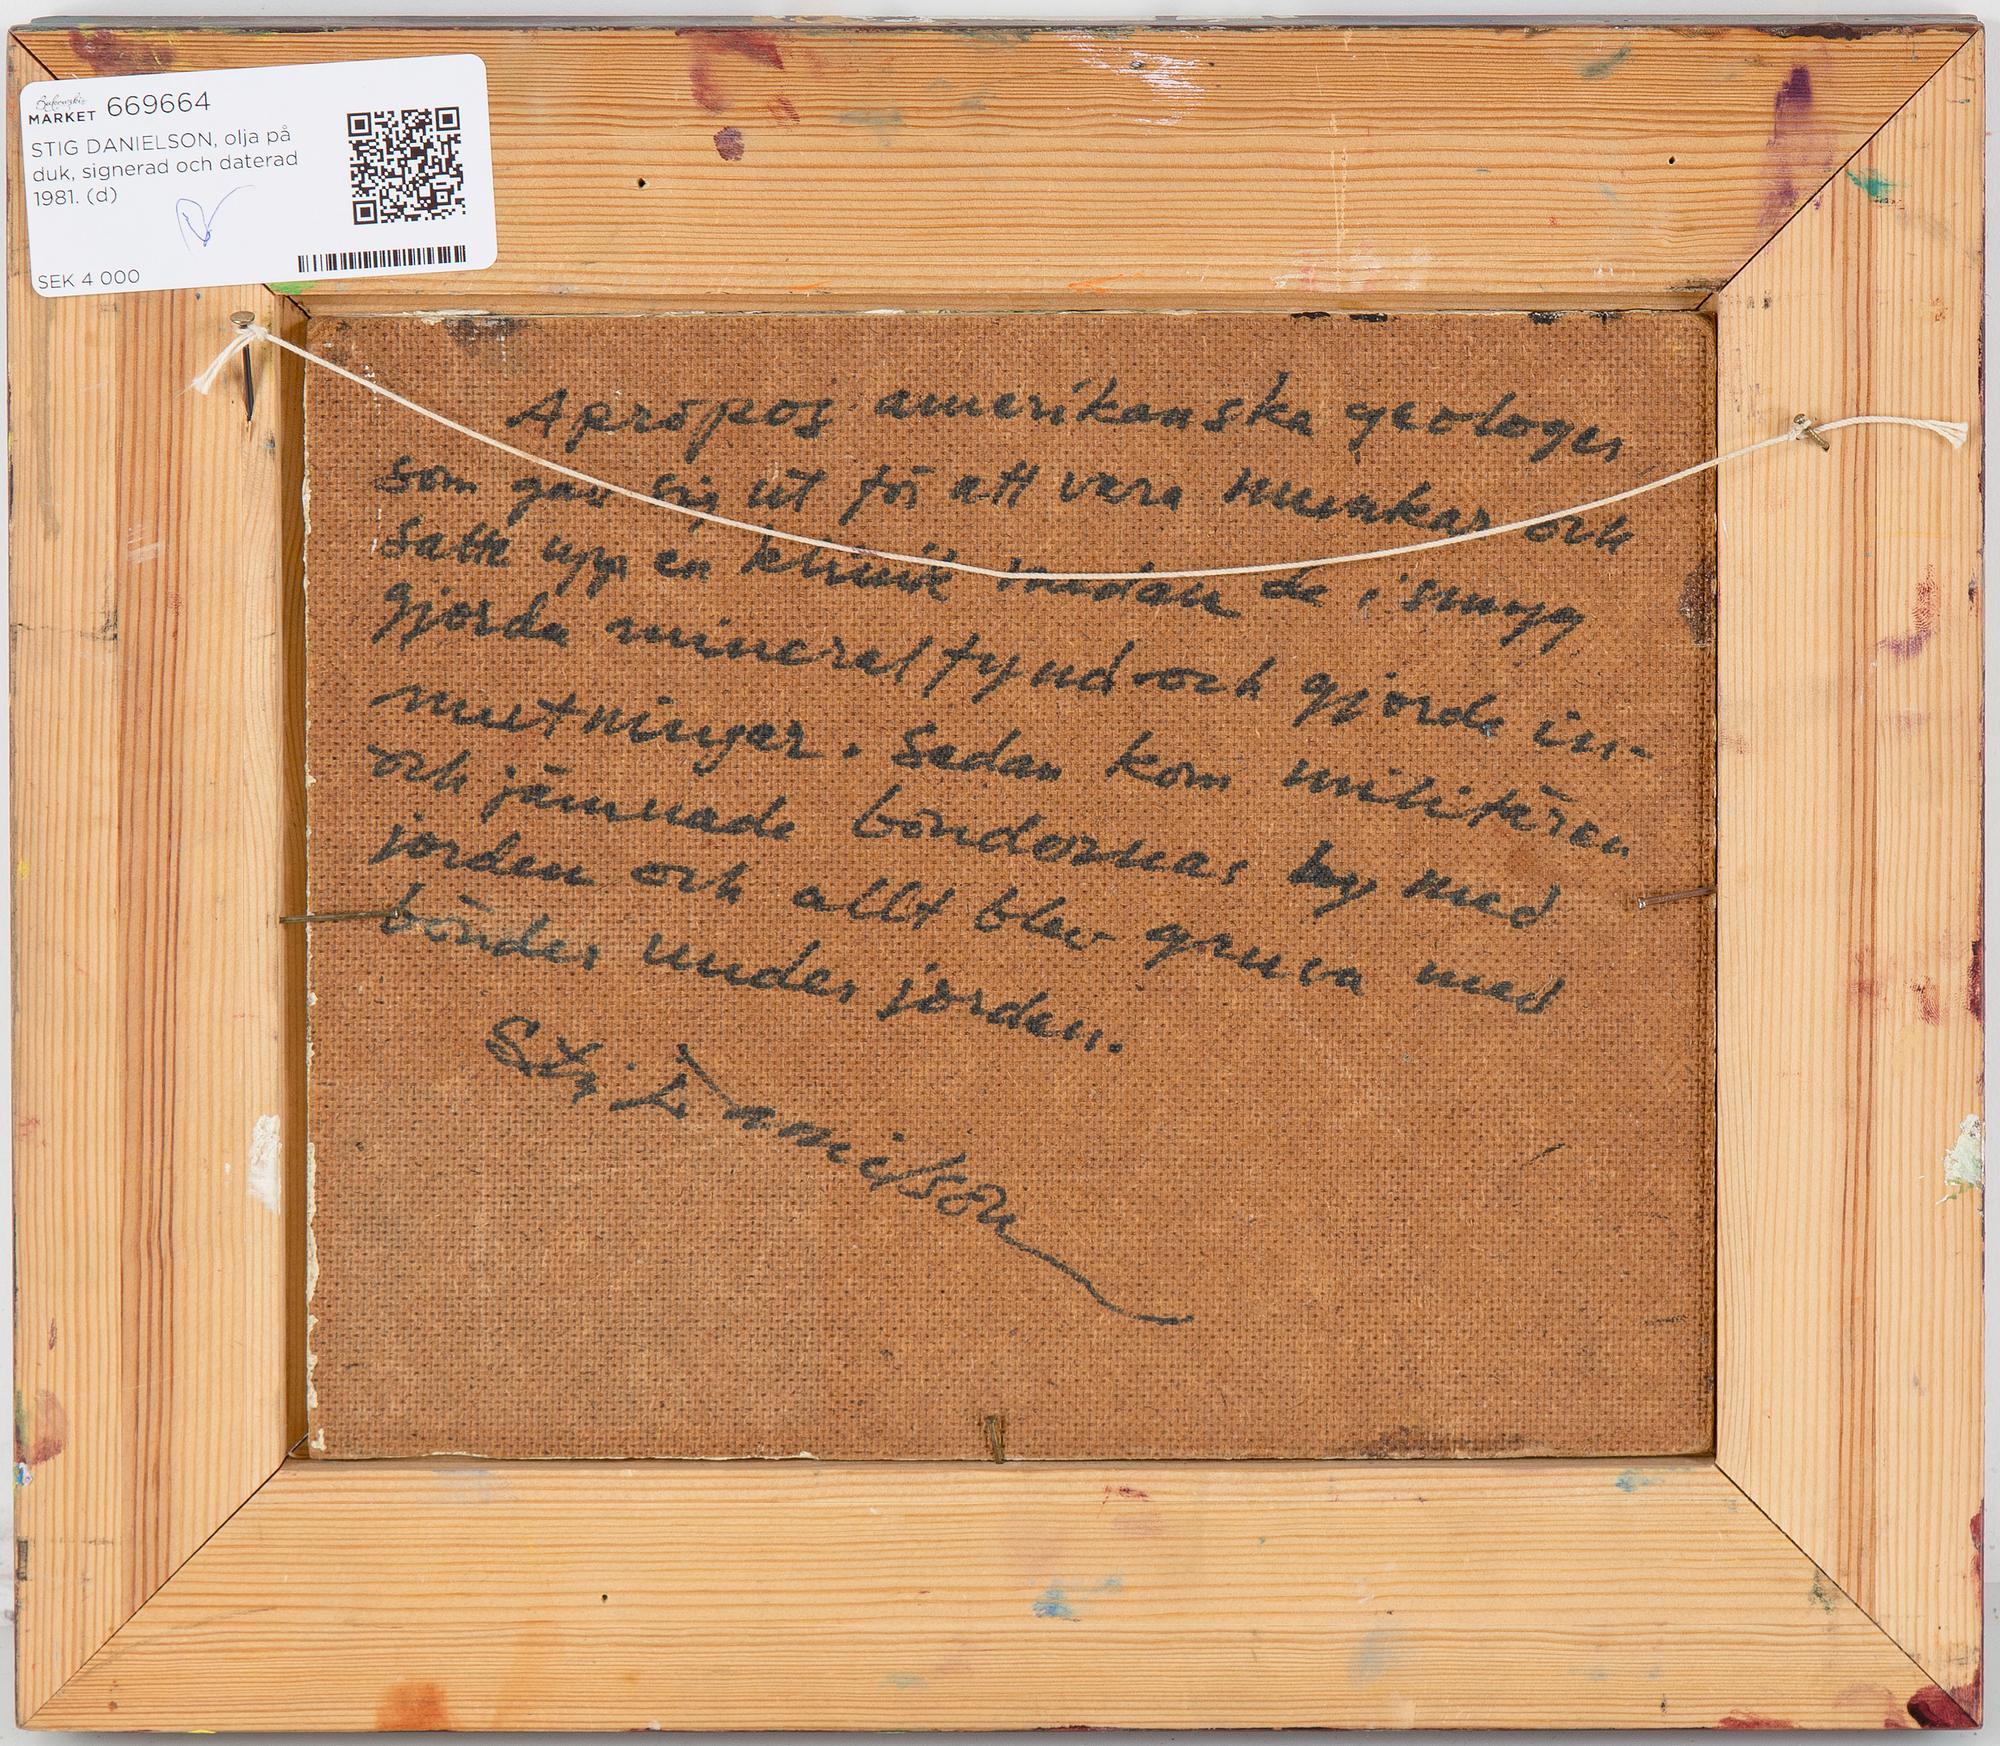 Bukowskis
MARKET 669664
STIG DANIELSON, olja på
duk, signerad och daterad
1981. (d)
SEK 4 000
Apropos amerikanska geologer,
som gav sig ut för att vara munkar och
satte upp en klinik medan de i smyg
gjorda mineralfynd och gjorde in-
mutningar. Sedan kom militären
och jämnade böndernas by med
jorden och allt blev gruva med
bönder under jorden.
Stig Danielson